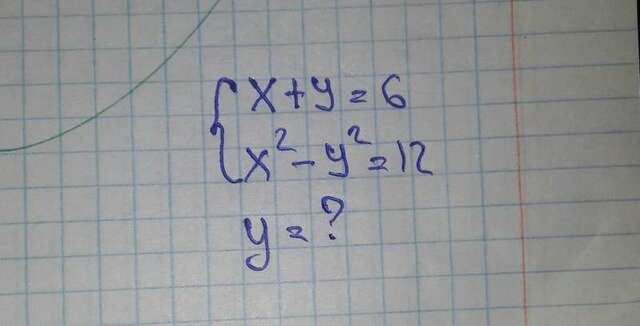 x+y=6
x²-y²=12
y=?